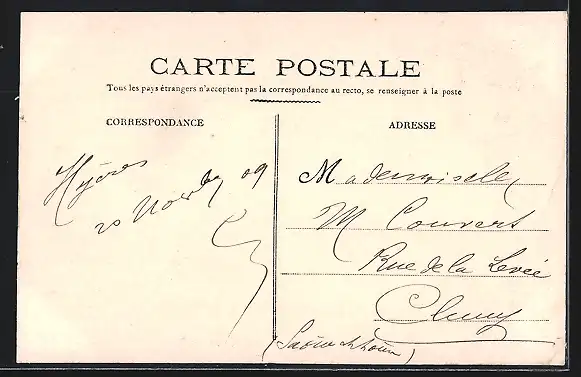 CARTE POSTALE
Tous les pays étrangers n'acceptent pas la correspondance au recto, se renseigner à la poste
CORRESPONDANCE
Hyères
20 Novbre 09
ADRESSE
Mademoiselle
M Couvert
Rue de la Levée
Cluny
(Saône et Loire)